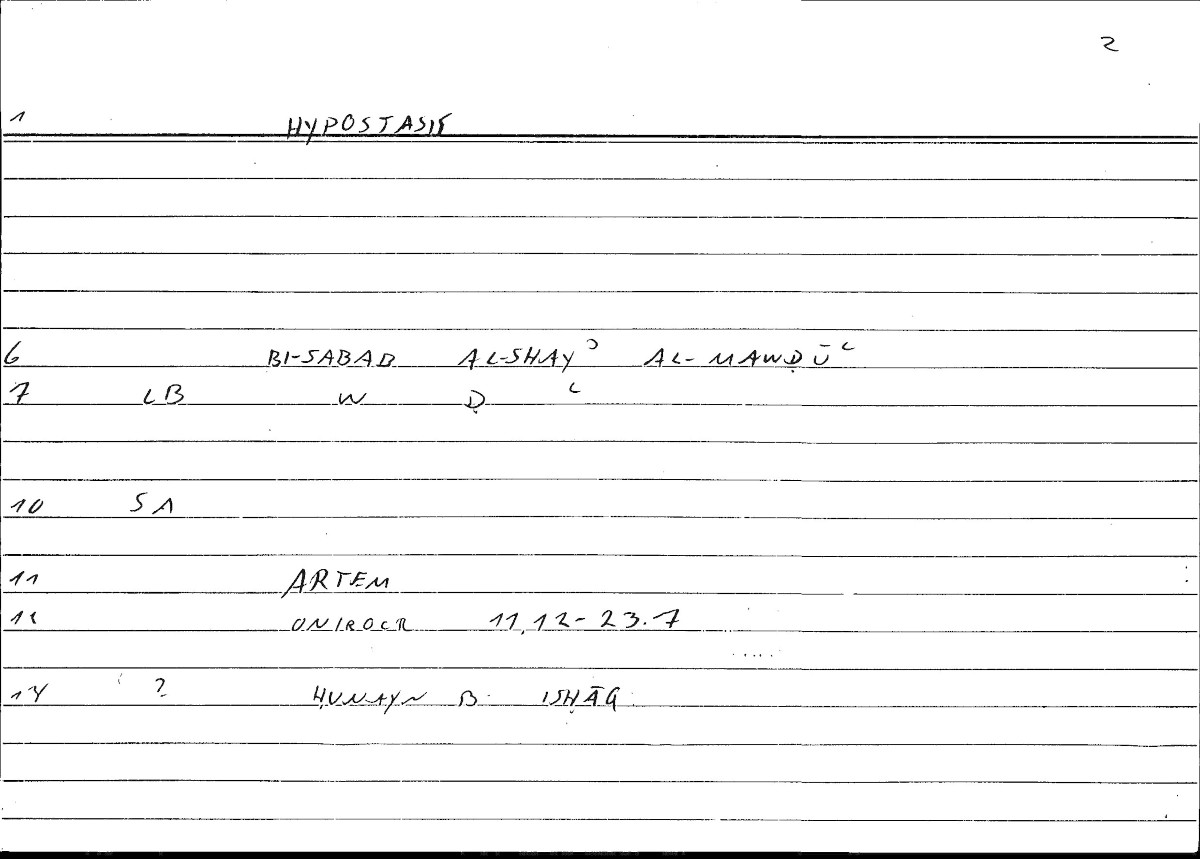 2
1 HYPOSTASIS
6 BI-SABAB AL-SHAYʾ AL-MAWḌŪʿ
7 LB W Ḍ ʿ
10 SA
11 ARTEM
12 ONIROCR 11,12-23.7
14 ? ḤUNAYN B. ISḤĀQ